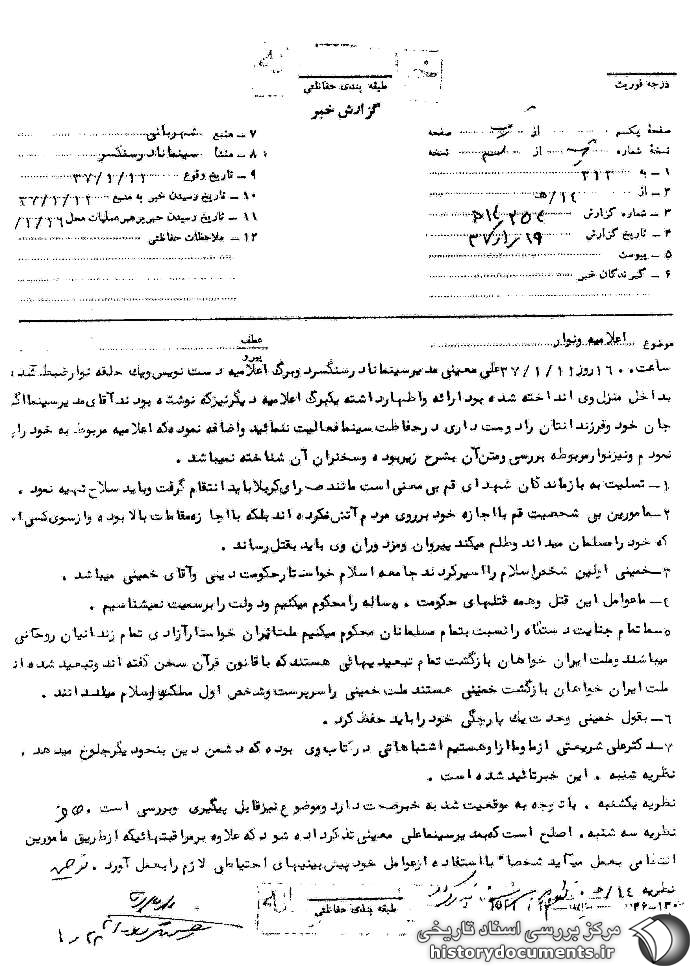 طبقه بندی حفاظتی
درجه فوریت
گزارش خبر
صفحه یکم از صفحه
نسخه شماره از نسخه
۱ – به ۳۱۲
۲ – از ۱۴/هـ
۳ – شماره گزارش
۴ – تاریخ گزارش
۵ – پیوست
۶ – گیرندگان خبر
۷ – منبع شهربانی
۸ – منشأ سینما نادر سنگسر
۹ – تاریخ وقوع ۳۷/۱/۱۱
۱۰ – تاریخ رسیدن خبر به منبع ۳۷/۱/۱۱
۱۱ – تاریخ رسیدن خبر به رهبر عملیات محل
۱۲ – ملاحظات حفاظتی
موضوع اعلامیه و نوار
عطف
پیرو
ساعت ۱۶۰۰ روز ۳۷/۱/۱۱ علی معینی مدیر سینما نادر سنگسر دو برگ اعلامیه دست نویس و یک حلقه نوار ضبط شده
بداخل منزل وی انداخته شده بود ارائه و اظهار داشته یکبرگ اعلامیه دیگر نیز که نوشته بودند آقای مدیر سینما اگر
جان خود و فرزندانتان را دوست داری در حفاظت سینما فعالیت ننمائید و اضافه نموده که اعلامیه مربوط به خود را
نمودم و نیز نوار مربوطه بررسی و متن آن بشرح زیر بوده و سخنران آن شناخته نمیباشد .
۱ – تسلیت به بازماندگان شهدای قم بی معنی است مانند صحرای کربلا باید انتقام گرفت و باید سلاح تهیه نمود .
۲ – مامورین بی شخصیت قم با اجازه خود بر روی مردم آتش نکرده اند بلکه با اجازه مقامات بالا بوده و از سوی کسی
که خود را مسلمان میداند و ظلم میکند پیروان و مزدوران وی باید بقتل رساند .
۳ – خمینی اولین شخص اسلام را اسیر کردند جامعه اسلام خواستار حکومت دینی و آقای خمینی میباشد .
٤ – ما عوامل این قتل و همه قتلهای حکومت ۵۰ ساله را محکوم میکنیم و دولت را برسمیت نمیشناسیم .
۵ – ما تمام جنایت دستگاه را نسبت بتمام مسلمانان محکوم میکنیم ملت ایران خواستار آزادی تمام زندانیان روحانی
میباشند و ملت ایران خواهان بازگشت تمام تبعیدیهائی هستند که با قانون قرآن سخن گفته اند و تبعید شده اند
ملت ایران خواهان بازگشت خمینی هستند ملت خمینی را سرپرست و شخص اول مملکت و اسلام میدانند .
۶ – بقول خمینی وحدت یک پارچگی خود را باید حفظ کرد .
۷ – دکتر علی شریعتی از ما و ما از او هستیم اشتباهاتی در کتاب وی بوده که دشمن دین بنحو دیگر جلوغ میدهد .
نظریه شنبه . این خبر تائید شده است .
نظریه یکشنبه . با توجه به موقعیت شنبه خبر صحت دارد و موضوع نیز قابل پیگیری و بررسی است .
نظریه سه شنبه . اصلح است که بمدیر سینما علی معینی تذکر داده شود که علاوه بر مراقبتهائیکه از طریق مامورین
انتظامی بعمل میآید شخصاً با استفاده از عوامل خود پیش بینیهای احتیاطی لازم را بعمل آورد .
نظریه ۱۴/هـ
طبقه بندی حفاظتی
مرکز بررسی اسناد تاریخی
historydocuments.ir